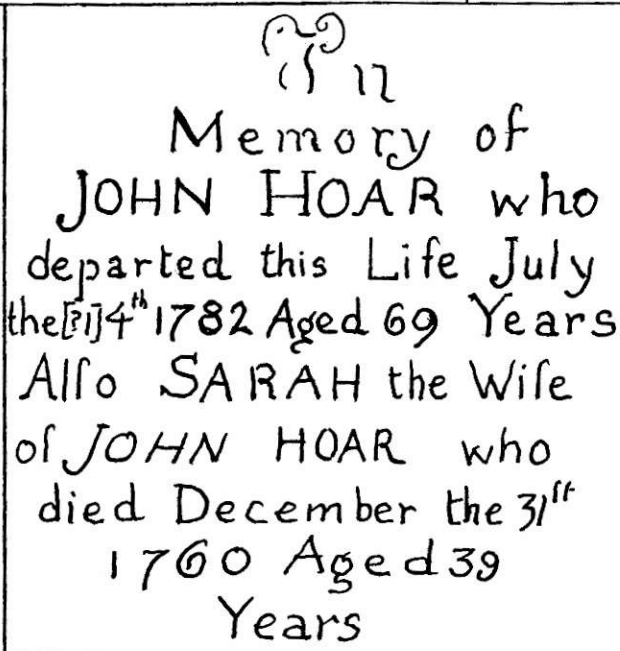 In
Memory of
JOHN HOAR who
departed this Life July
the [?1]4th 1782 Aged 69 Years
Alſo SARAH the Wife
of JOHN HOAR who
died December the 31ſt
1760 Aged 39
Years